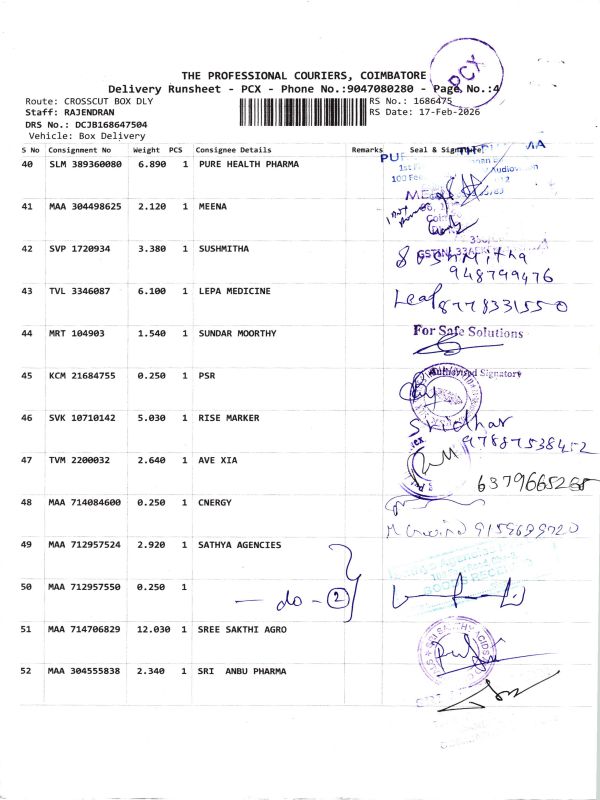 PCX
THE PROFESSIONAL COURIERS, COIMBATORE
Delivery Runsheet - PCX - Phone No.:9047080280 - Page No.:4
Route: CROSSCUT BOX DLY
RS No.: 1686475
Staff: RAJENDRAN
RS Date: 17-Feb-2026
DRS No.: DCJB168647504
Vehicle: Box Delivery
S No Consignment No Weight PCS Consignee Details Remarks Seal & Signature
40 SLM 389360080 6.890 1 PURE HEALTH PHARMA
41 MAA 304498625 2.120 1 MEENA
42 SVP 1720934 3.380 1 SUSHMITHA
Sushmitha
948799476
43 TVL 3346087 6.100 1 LEPA MEDICINE
Leaf 8778331550
44 MRT 104903 1.540 1 SUNDAR MOORTHY
For Safe Solutions
45 KCM 21684755 0.250 1 PSR
Authorised Signatory
46 SVK 10710142 5.030 1 RISE MARKER
Sridhar
47 TVM 2200032 2.640 1 AVE XIA
6379665265
48 MAA 714084600 0.250 1 CNERGY
49 MAA 712957524 2.920 1 SATHYA AGENCIES
50 MAA 712957550 0.250 1
— do - 2
51 MAA 714706829 12.030 1 SREE SAKTHI AGRO
52 MAA 304555838 2.340 1 SRI ANBU PHARMA